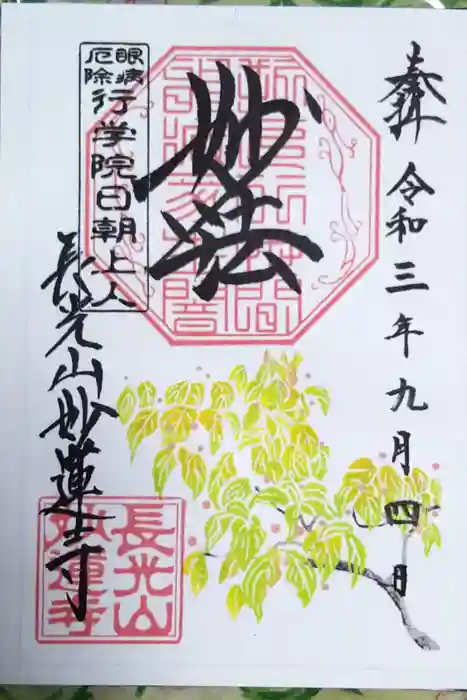 奉拝 令和三年九月四日
妙法
眼病
厄除
行学院日朝上人
長光山妙蓮寺
長光山
妙蓮寺